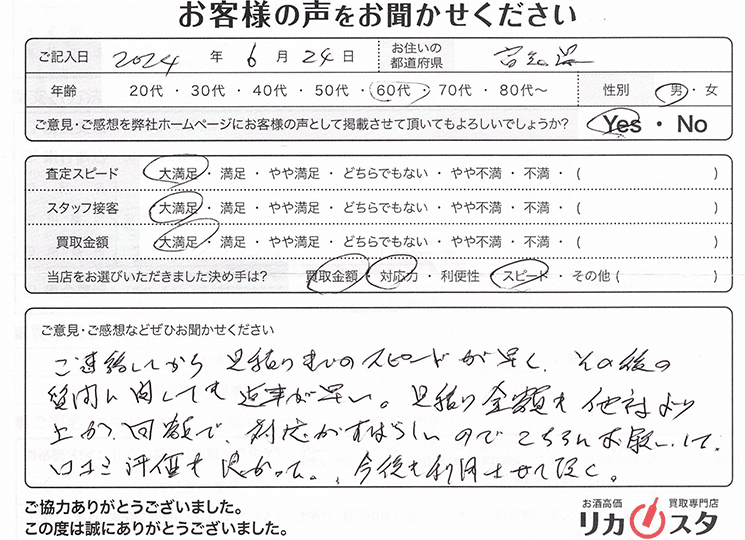 お客様の声をお聞かせください
ご記入日 2024 年 6 月 24 日 お住いの都道府県
年齢 20代 ・ 30代 ・ 40代 ・ 50代 ・ 60代 ・ 70代 ・ 80代〜 性別 男 ・ 女
ご意見・ご感想を弊社ホームページにお客様の声として掲載させて頂いてもよろしいでしょうか? Yes ・ No
査定スピード 大満足 ・ 満足 ・ やや満足 ・ どちらでもない ・ やや不満 ・ 不満 ・ ( )
スタッフ接客 大満足 ・ 満足 ・ やや満足 ・ どちらでもない ・ やや不満 ・ 不満 ・ ( )
買取金額 大満足 ・ 満足 ・ やや満足 ・ どちらでもない ・ やや不満 ・ 不満 ・ ( )
当店をお選びいただきました決め手は? 買取金額 ・ 対応力 ・ 利便性 ・ スピード ・ その他 ( )
ご意見・ご感想などぜひお聞かせください
ご連絡してから 見積りまでのスピードが早く、その後の
質問に関しても 返事が早い。見積り金額も他社より
上か、同額で、対応がすばらしいのでこちらにお願いして、
口コミ評価も良かった。、今後も利用させて頂く。
ご協力ありがとうございました。
この度は誠にありがとうございました。
お酒高価 買取専門店
リカスタ